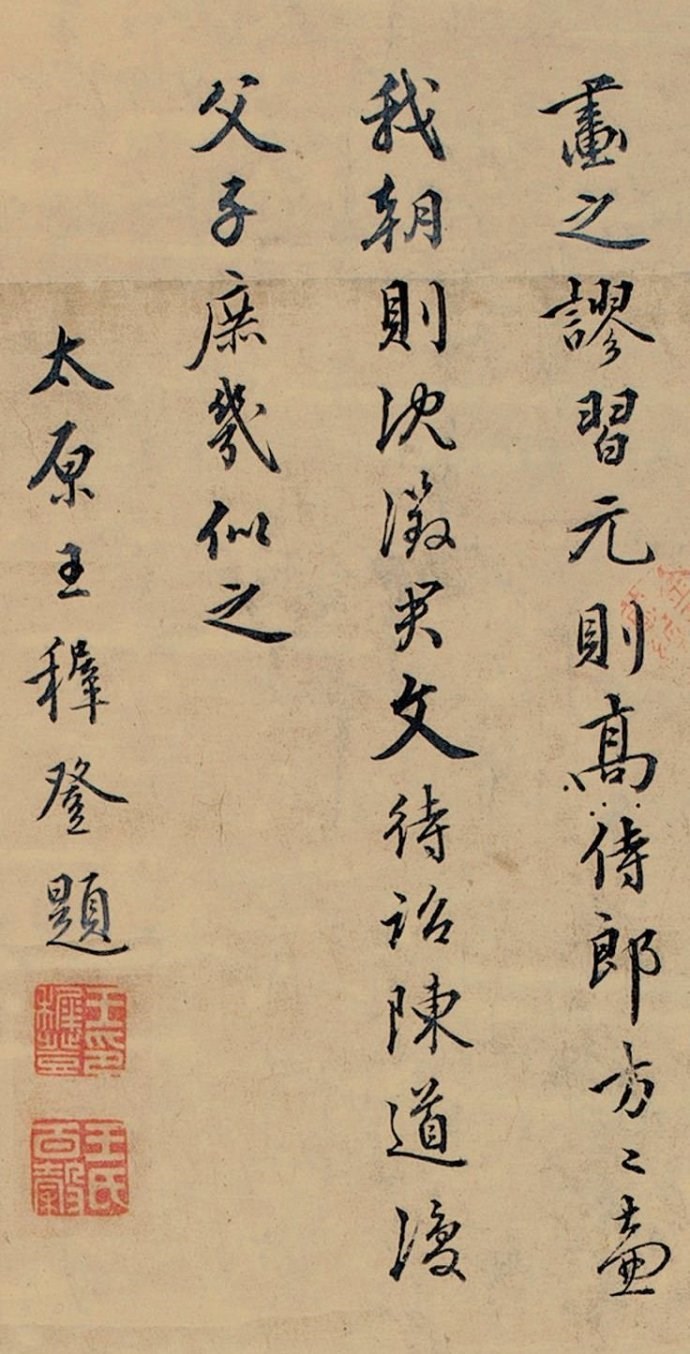 畫之謬習元則高侍郎方〻壺
我朝則沈徵君文待詔陳道復
父子庶幾似之
太原王穉登題
王印穉登
王氏百穀